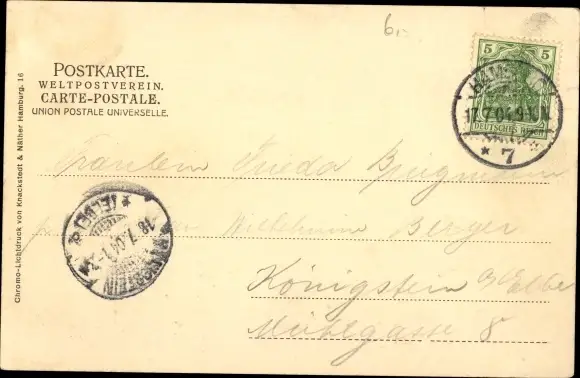 6,-
POSTKARTE.
WELTPOSTVEREIN.
CARTE-POSTALE.
UNION POSTALE UNIVERSELLE.
Chromo-Lichtdruck von Knackstedt & Näther Hamburg. 16
5 5
DEUTSCHES REICH
HAMBURG
17.7.04.9-10V.
* 7
Fräulein Frieda
Wilhelmine Berger
Königstein a/Elbe
Mühlgasse 8
KÖNIGSTEIN
(ELBE)
18.7.04